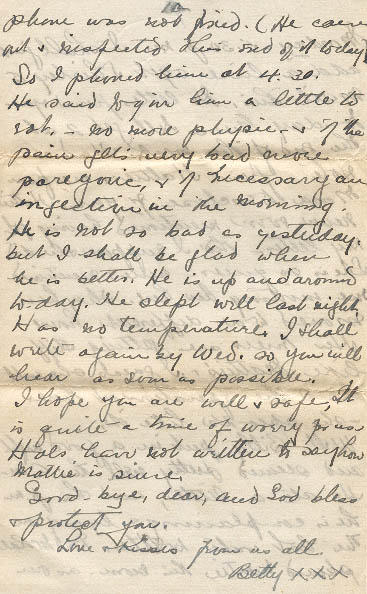 phone was not fixed. (He came
out & inspected this end of it today)
So I phoned him at 4.30.
He said to give him a little to
eat, - no more physic - & if the
pain gets very bad more
paregoric, & if necessary an
ingection in the morning.
He is not so bad as yesterday.
but I shall be glad when
he is better. He is up and around
today. He slept well last night
Has no temperature. I shall
write again by Wed. so you will
hear as soon as possible.
I hope you are well & safe, It
is quite a time of worry for us.
Hals have not written to say how
Mattie is since.
Good-bye, dear, and God bless
& protect you.
Love & Kisses from us all
Betty x x x